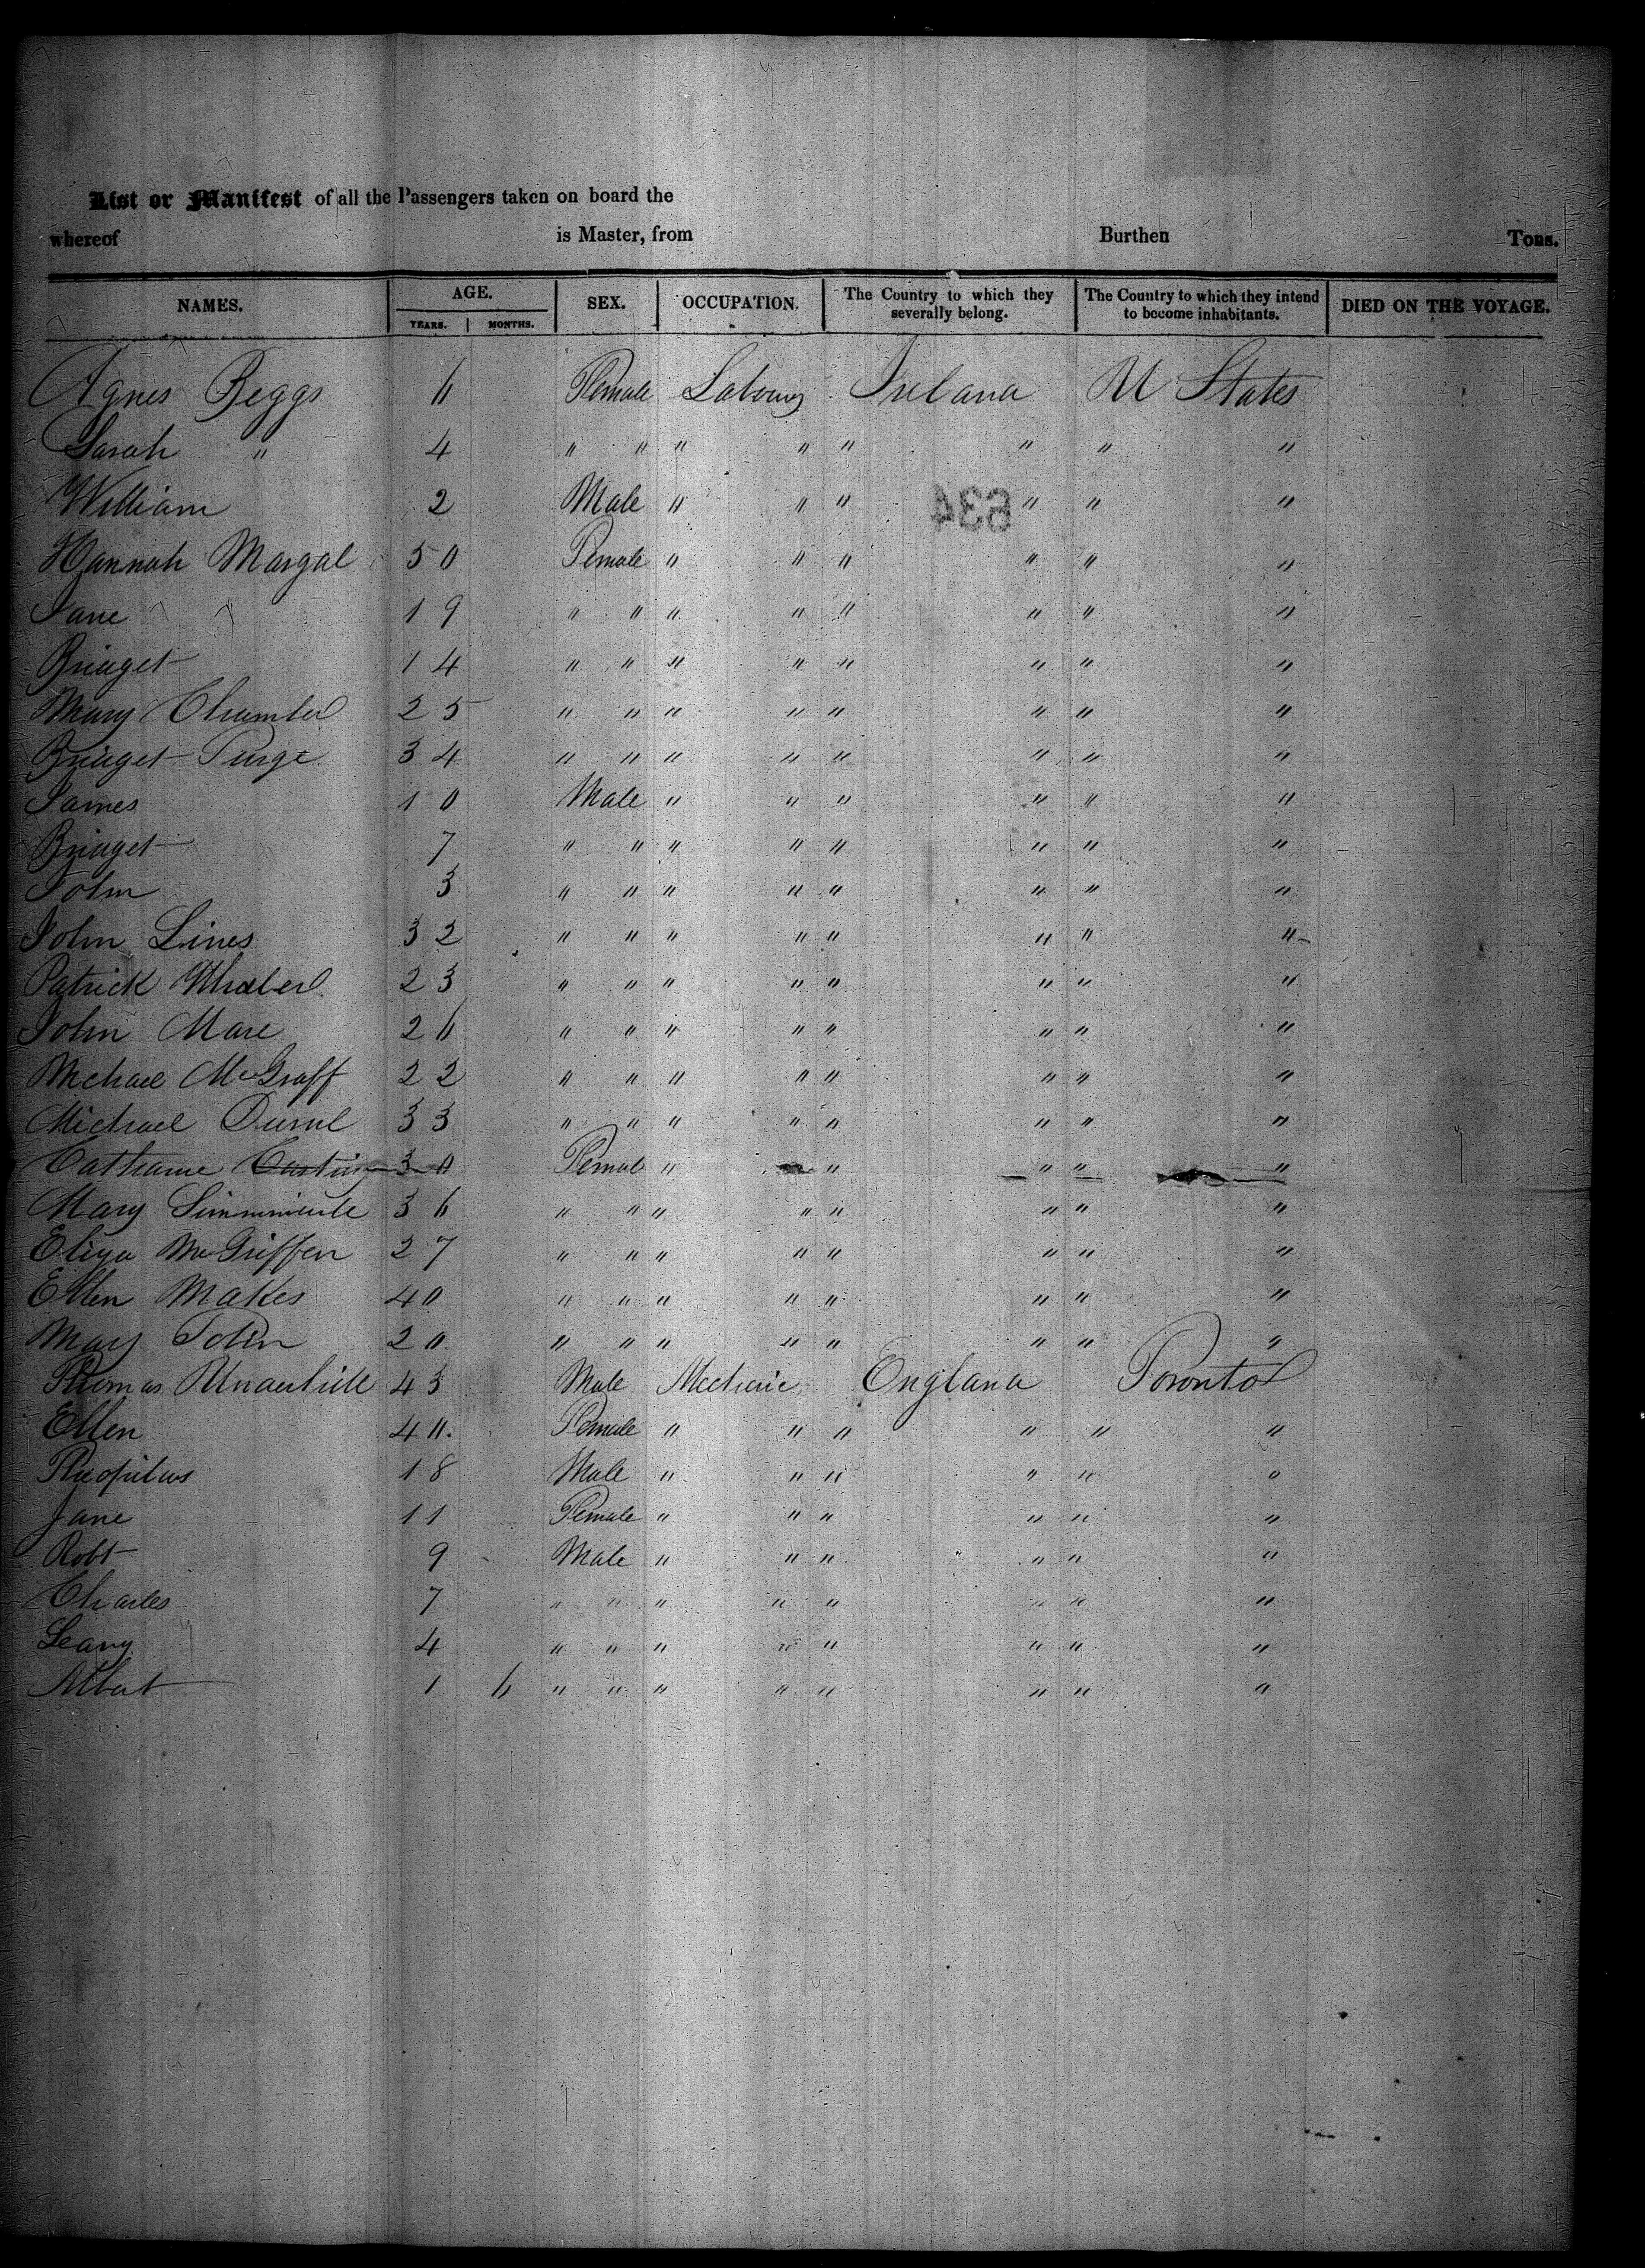 List or Manifest of all the Passengers taken on board the
whereof is Master, from Burthen Tons.
NAMES. AGE. SEX. OCCUPATION. The Country to which they severally belong. The Country to which they intend to become inhabitants. DIED ON THE VOYAGE.
YEARS. MONTHS.
Agnes Beggs 6 Female Labourer Ireland U States
Sarah " 4 " " " " " " " "
William 2 Male " " " " " "
Hannah Margal 50 Female " " " " " "
Jane 19 " " " " " " " "
Bridget 14 " " " " " " " "
Mary Chamber 25 " " " " " " " "
Bridget Purge 34 " " " " " " " "
James 10 Male " " " " " "
Bridget 7 " " " " " " " "
John 3 " " " " " " " "
John Lines 32 " " " " " " " "
Patrick 23 " " " " " " " "
John Mare 26 " " " " " " " "
Michael McGraff 22 " " " " " " " "
Michael 33 " " " " " " " "
Catharine 30 Female " " " " "
Mary 36 " " " " " " " "
Eliza McGriffen 27 " " " " " " " "
Ellen Makes 40 " " " " " " " "
Mary Tolin 20 " " " " " " " "
Thomas Underhill 43 Male Mechanic England Toronto
Ellen 40. Female " " " " " "
Theopilus 18 Male " " " " " "
Jane 11 Female " " " " " "
Robt 9 Male " " " " " "
Charles 7 " " " " " " " "
4 " " " " " " " "
Albert 1 6 " " " " " " " "
634